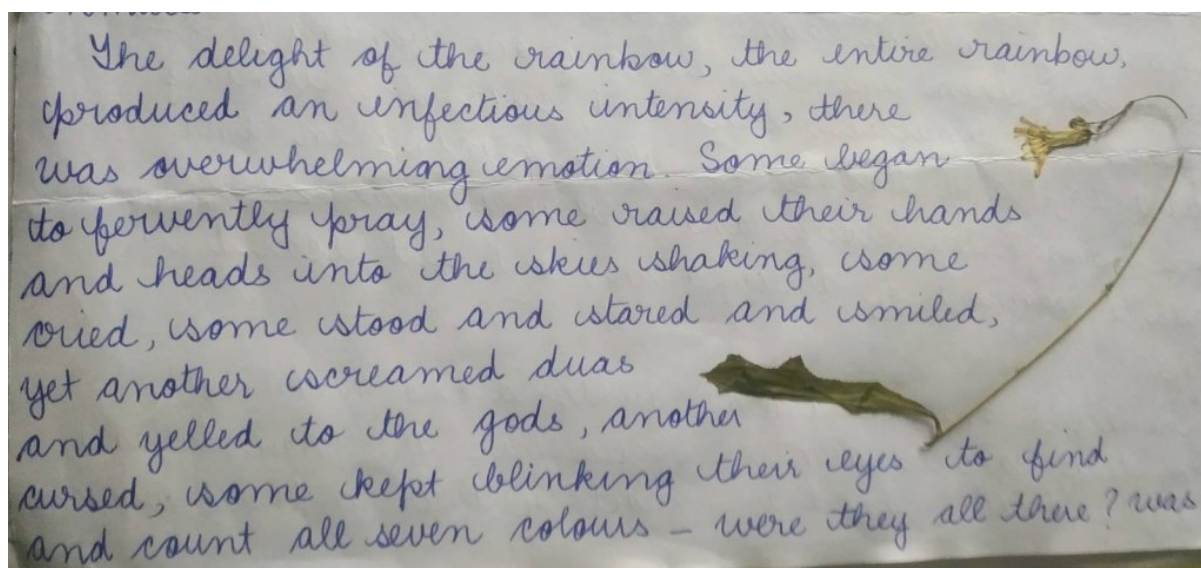 The delight of the rainbow, the entire rainbow,
produced an infectious intensity, there
was overwhelming emotion. Some began
to fervently pray, some raised their hands
and heads into the skies shaking, some
cried, some stood and stared and smiled,
yet another screamed duas
and yelled to the gods, another
cursed, some kept blinking their eyes to find
and count all seven colours – were they all there? was